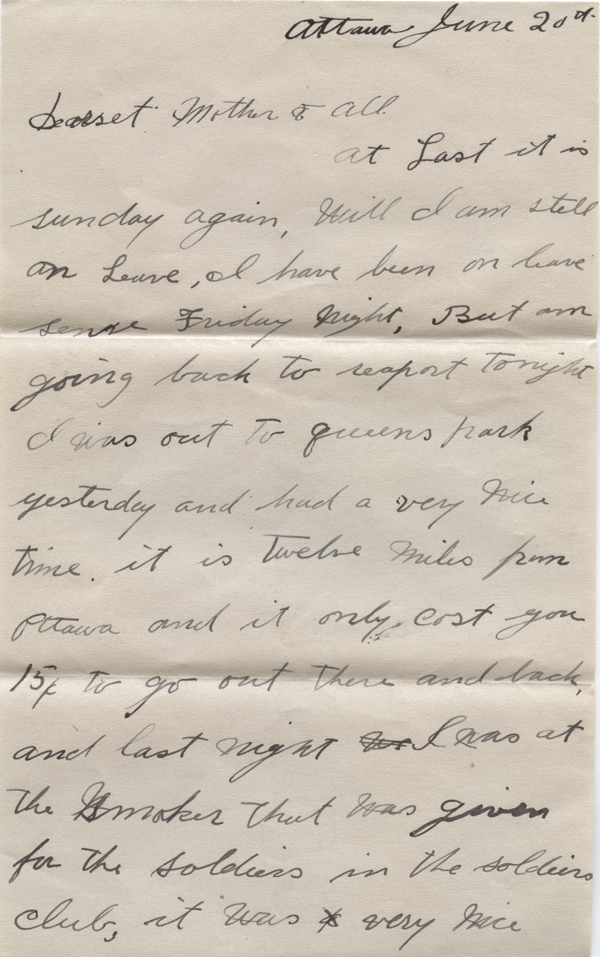 Ottawa June 20th
Dearset Mother & all.
at Last it is
sunday again, Will I am still
on Leave, I have been on leave
sense Friday Night, But am
going back to reaport tonight
I was out to queens park
yesterday and had a very Nice
time. it is twelve Miles from
Ottawa and it only cost you
15¢ to go out there and back,
and last night I was at
the Smoker that was given
for the soldiers in the soldiers
club, it was very Nice